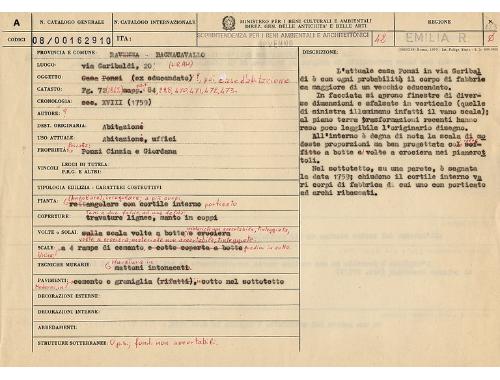 A
N. CATALOGO GENERALE
N. CATALOGO INTERNAZIONALE
MINISTERO PER I BENI CULTURALI E AMBIENTALI
DIREZ. GEN. DELLE ANTICHITA' E BELLE ARTI
REGIONE
N.
CODICI
08/00162910
ITA:
SOPRINTENDENZA PER I BENI AMBIENTALI E ARCHITETTONICI
48
EMILIA R.
PROVINCIA E COMUNE:
RAVENNA - BAGNACAVALLO
LUOGO:
via Garibaldi, 20
OGGETTO:
Casa Ponzi (ex educandato)
CATASTO:
Fg. 72
CRONOLOGIA:
sec. XVIII (1759)
AUTORE:
DEST. ORIGINARIA:
Abitazione
USO ATTUALE:
Abitazione, uffici
PROPRIETÀ:
Ponzi Cinzia e Giordana
VINCOLI
LEGGI DI TUTELA:
P.R.G. E ALTRI:
TIPOLOGIA EDILIZIA - CARATTERI COSTRUTTIVI
PIANTA:
rettangolare con cortile interno porticato
COPERTURE:
travature lignee, manto in coppi
VOLTE o SOLAI:
sulla scala volta a botte e crociera
SCALE:
a 4 rampe di cemento e cotto coperta a botte
TECNICHE MURARIE:
mattoni intonacati
PAVIMENTI:
cemento e graniglia (rifatti), cotto nel sottotetto
DECORAZIONI ESTERNE:
DECORAZIONI INTERNE:
ARREDAMENTI:
STRUTTURE SOTTERRANEE:
non accertabili.
DESCRIZIONE:
L'attuale casa Ponzi in via Garibal
di è con ogni probabilità il corpo di fabbrica
maggiore di un vecchio educandato.
In facciata si aprono finestre di diver-
se dimensioni e sfalsate in verticale (quelle
di sinistra illuminano infatti il vano scale);
al piano terra trasformazioni recenti hanno
reso poco leggibile l'originario disegno.
All'interno è degna di nota la scala di mo
deste proporzioni ma ben progettata con sof-
fitto a botte e volte a crociera nei pianerot
toli.
Nel sottotetto, su una parete, è segnata
la data 1759; chiudono il cortile interno va
ri corpi di fabbrica di cui uno con porticato
ad archi ribassati.